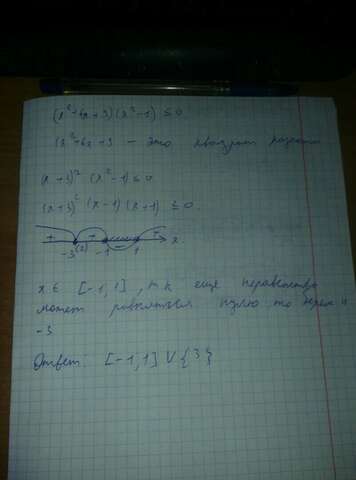 (x²+6x+3)(x²-1) ≤ 0
(x²+6x+3 - это квадрат
(x+3)² (x²-1) ≤ 0
(x+3)² (x-1)(x+1) ≤ 0
+ + - + x
-3 (2) -1 1
x ∈ [-1,1], т.к еще неравенство
может равняться нулю, то
-3
Ответ: [-1,1] V {3}